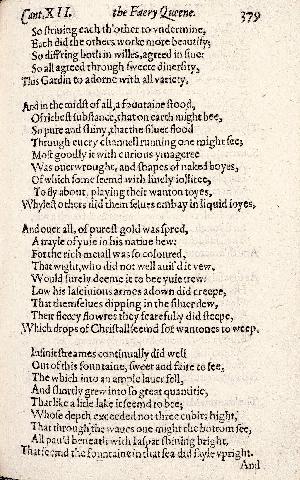 Cant. XII. the Faery Queene. 379
So ſtriuing each th'other to vndermine,
Each did the others worke more beautify;
So diff'ring both in willes, agreed in fine:
So all agreed through ſweete diuerſity,
This Gardin to adorne with all variety.
And in the midſt of all, a fountaine ſtood,
Of richeſt ſubſtance, that on earth might bee,
So pure and ſhiny, that the ſiluer flood
Through euery channell running one might ſee;
Moſt goodly it with curious ymageree
Was ouerwrought, and ſhapes of naked boyes,
Of which ſome ſeemd with liuely iollitee,
To fly about, playing their wanton toyes,
Whyleſt others did them ſelues embay in liquid ioyes.
And ouer all, of pureſt gold was ſpred,
A trayle of yuie in his natiue hew:
For the rich metall was ſo coloured,
That wight, who did not well auis'd it vew,
Would ſurely deeme it to bee yuie trew:
Low his laſciuious armes adown did creepe,
That themſelues dipping in the ſiluer dew,
Their fleecy flowres they fearefully did ſteepe,
Which drops of Chriſtall ſeemd for wantones to weep.
Infinit ſtreames continually did well
Out of this fountaine, ſweet and faire to ſee,
The which into an ample lauer fell,
And ſhortly grew into ſo great quantitie,
That like a little lake it ſeemd to bee;
Whoſe depth exceeded not three cubits hight,
That through the waues one might the bottom ſee,
All pau'd beneath with Iaſpar ſhining bright,
That ſeemd the fountaine in that ſea did ſayle vpright.
And